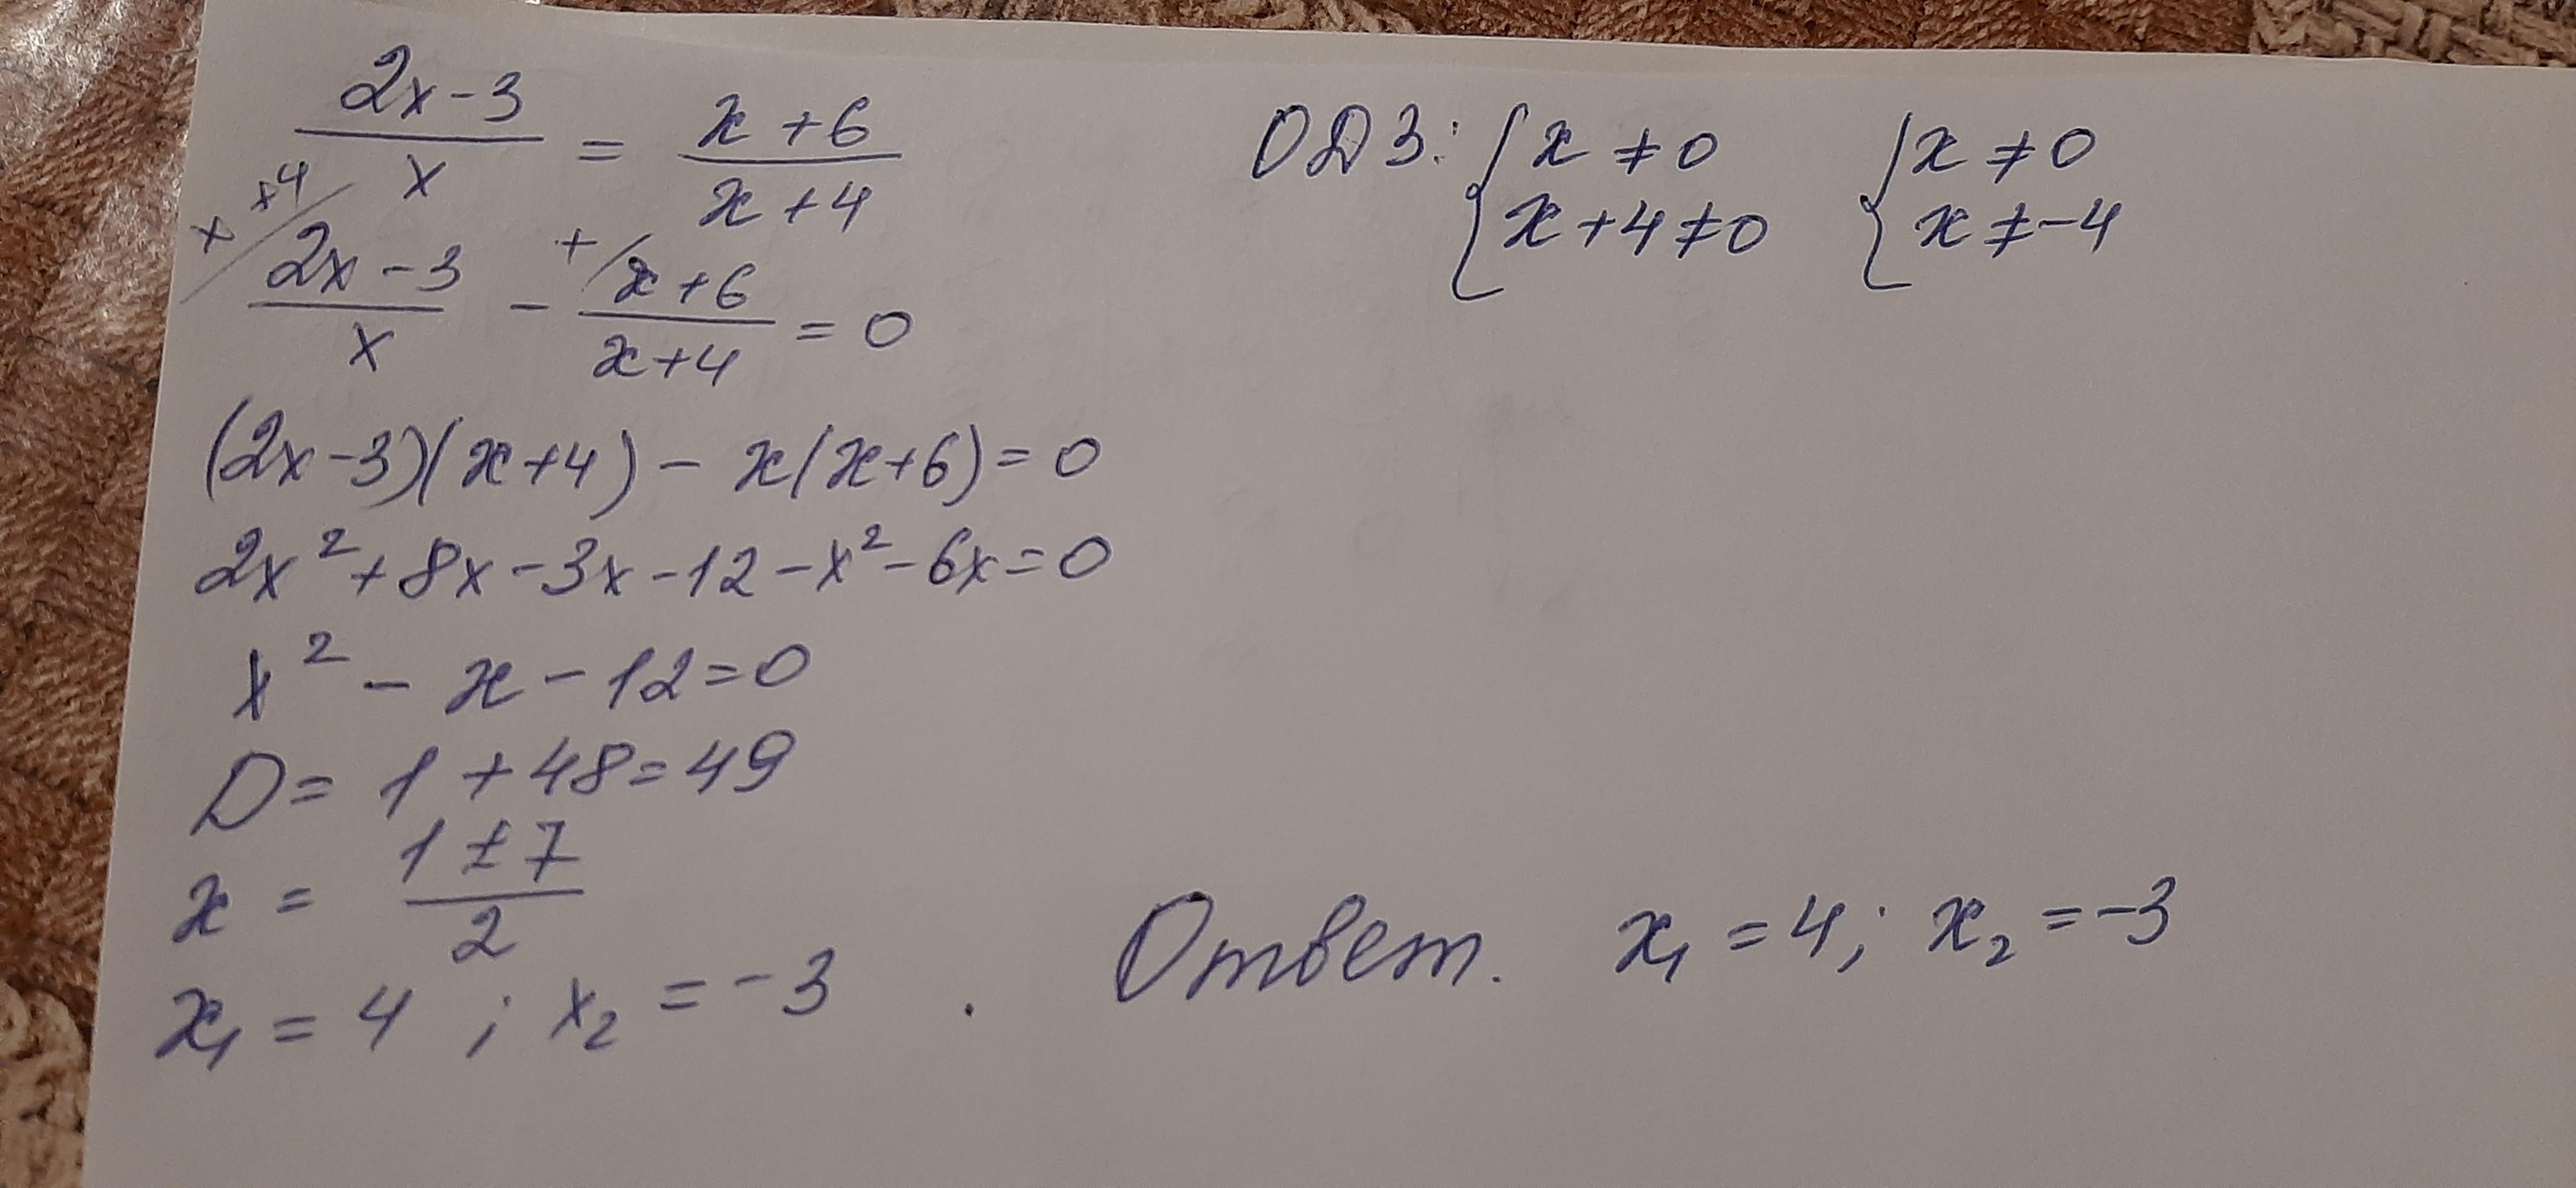 (2x-3)/x = (x+6)/(x+4)
ОДЗ: { x ≠ 0 { x ≠ 0
x+4 ≠ 0 x ≠ -4
x+4/ (2x-3)/x - x/ (x+6)/(x+4) = 0
(2x-3)(x+4) - x(x+6) = 0
2x² + 8x - 3x - 12 - x² - 6x = 0
x² - x - 12 = 0
D = 1 + 48 = 49
x = (1 ± 7)/2
x₁ = 4 ; x₂ = -3 . Ответ. x₁ = 4; x₂ = -3